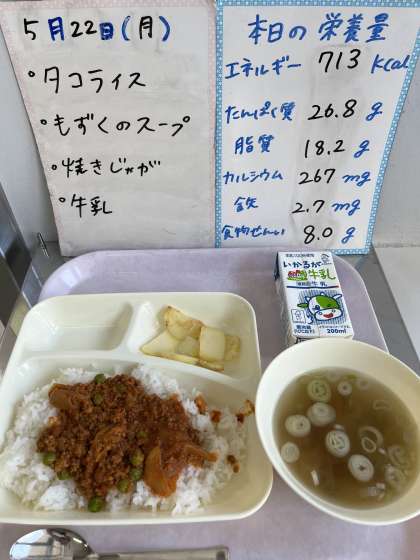 5月22日(月)
・タコライス
・もずくのスープ
・焼きじゃが
・牛乳
本日の栄養量
エネルギー 713 kcal
たんぱく質 26.8 g
脂質 18.2 g
カルシウム 267 mg
鉄 2.7 mg
食物せんい 8.0 g
いかるが
牛乳
200ml